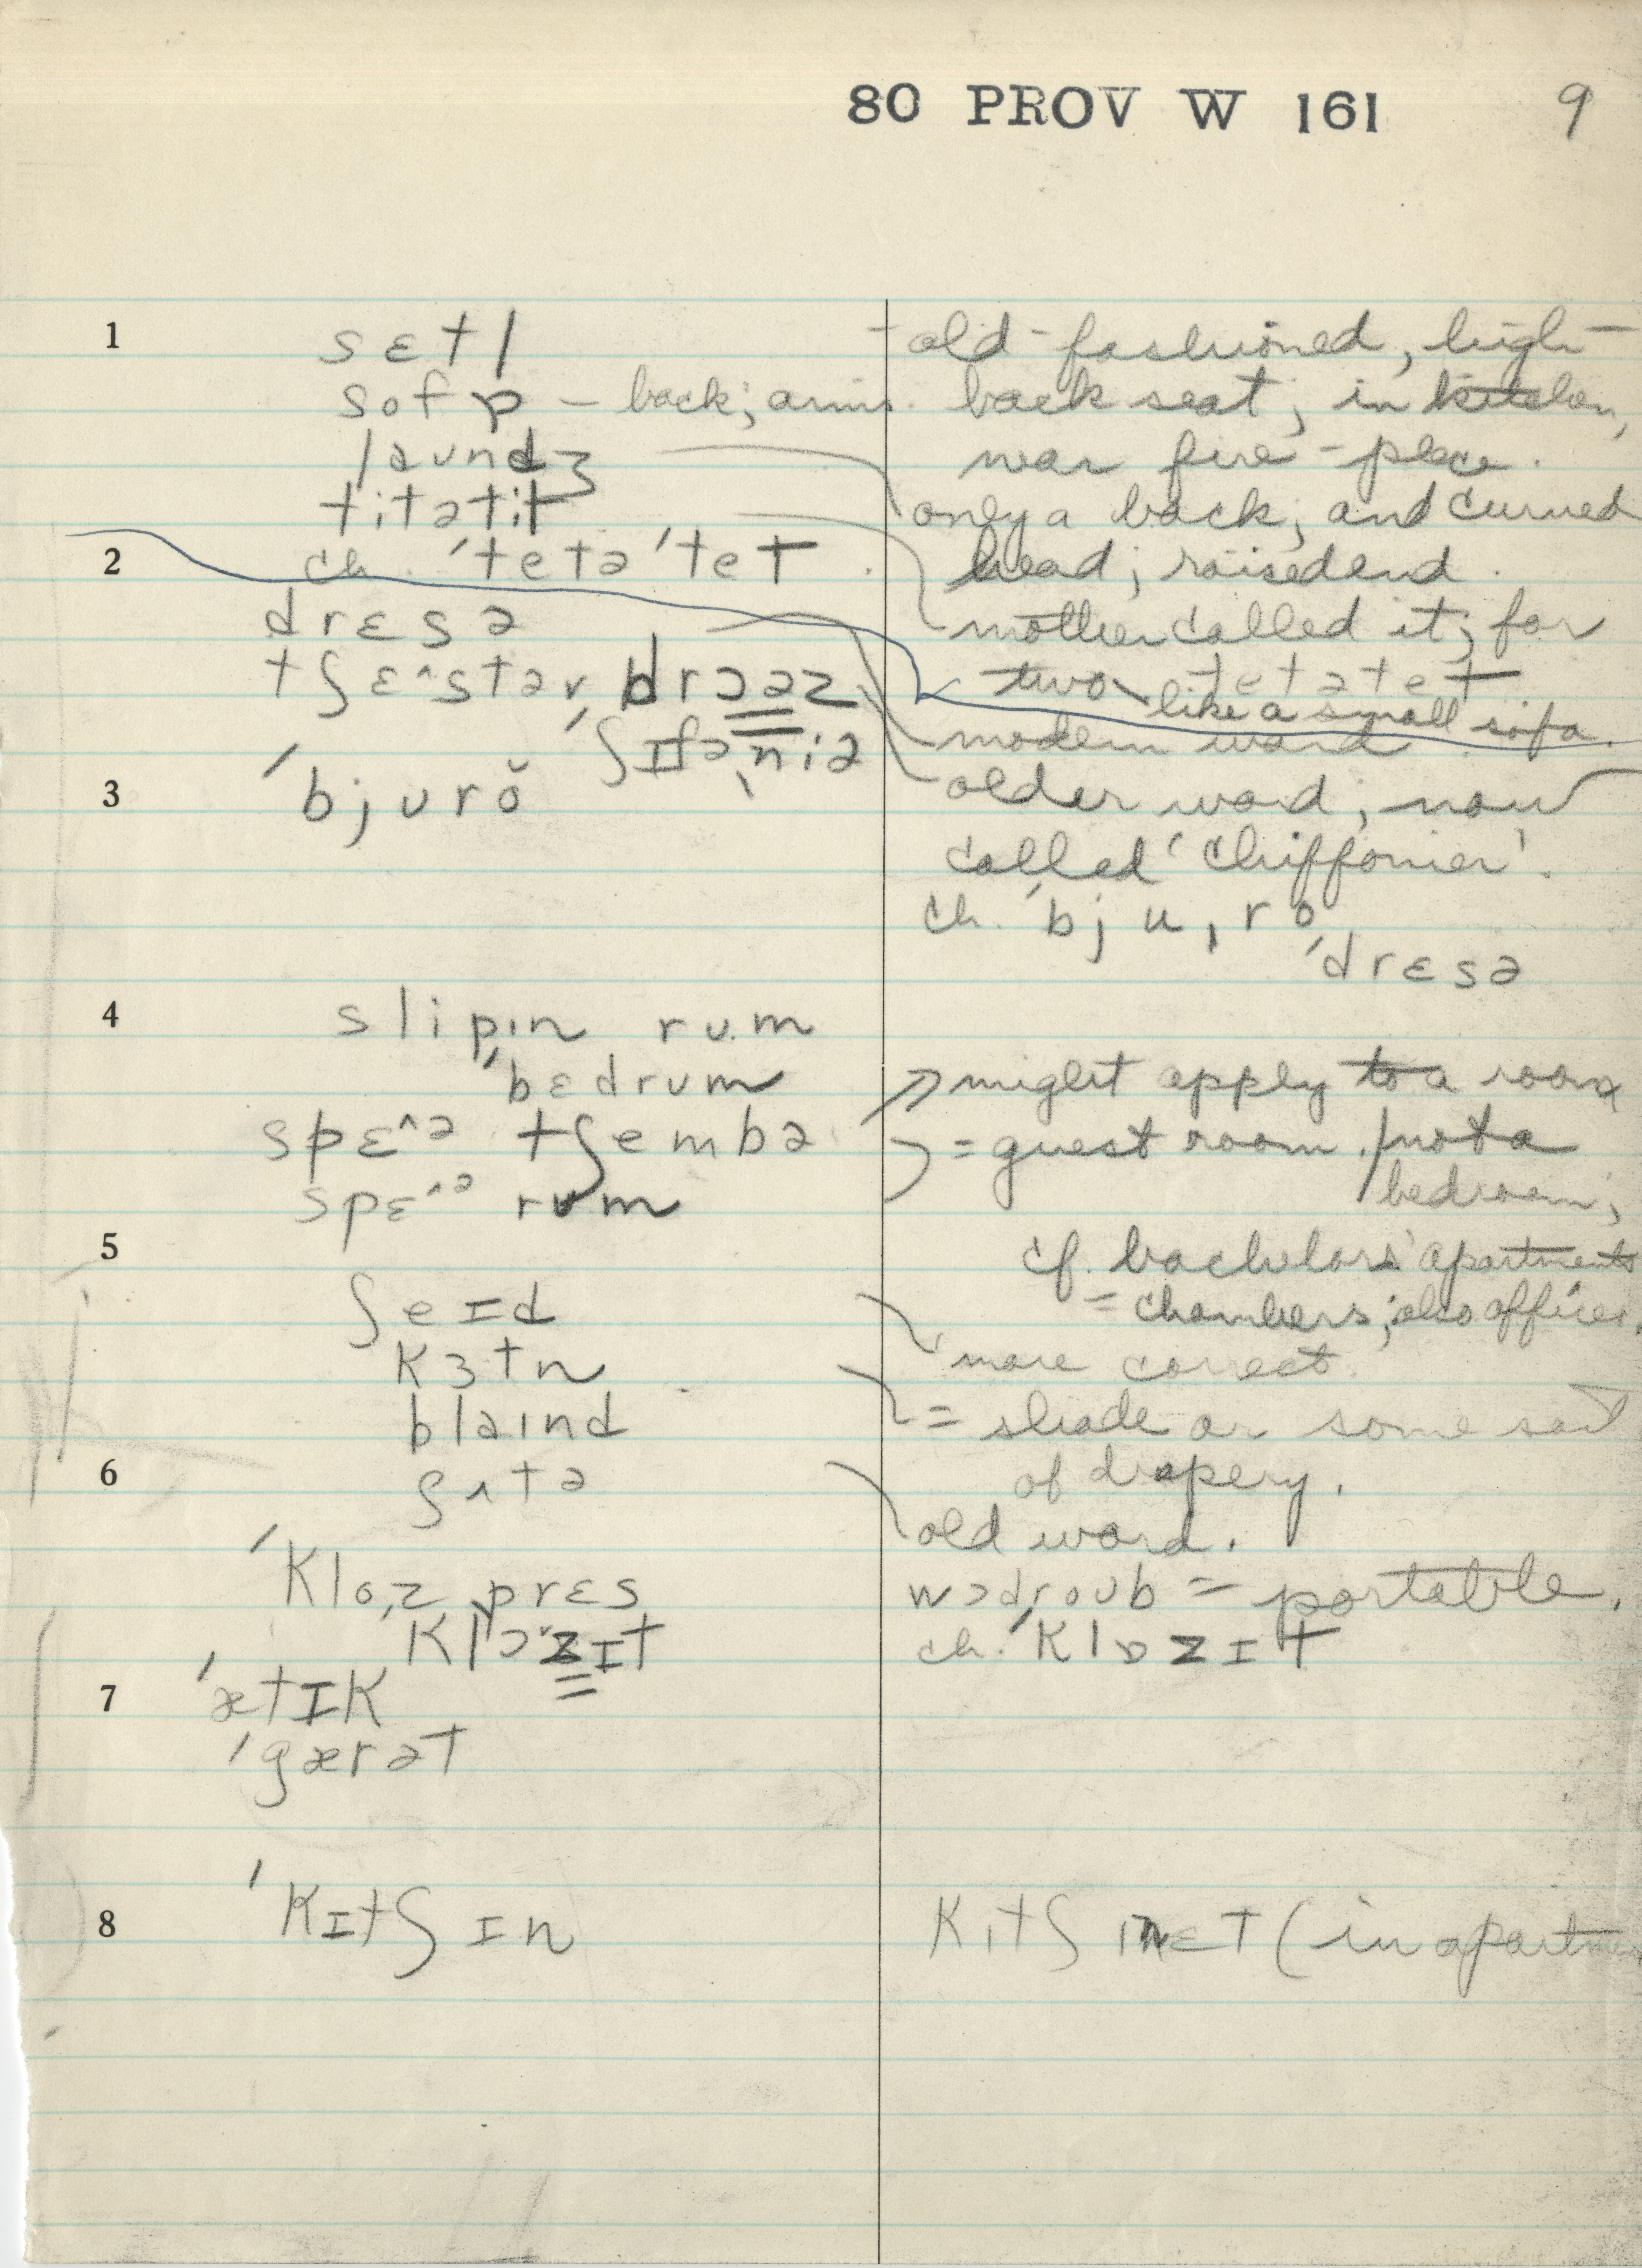 80 PROV W 161 9
1 sɛtl - old-fashioned, high-
sofɒ – back; arms. back seat, in kitchen,
laʊndʒ near fire-place.
titətit only a back, and curved
2 ch. ˈtetəˈtet head; raised end.
drɛsə mother called it; for
tʃɛ^stəv drɔəz two tetətet
like a small sofa.
ˌʃɪfəˈniə modern word
3 ˈbjʊrŏ older word, now
called 'chiffonier'.
ch. ˈbjuˌro
ˈdrɛsə
4 slipɪn rum
ˈbɛdrum might apply to a room
spɛ^ə tʃembə = guest room. / not a
spɛ^ə rum bedroom;
5 cf. bachelors' apartments
ʃeɪd = chambers; also offices.
kɜtn more correct
blaɪnd = shade or some sort
6 ʃʌtə of drapery.
old word.
ˈkloˌz prɛs wɔdroʊb = portable.
klɔzɪt ch. ˈklɒzɪt
7 ˈætɪk
ˈgærət
8 ˈkɪtʃɪn kɪtʃɪnɛt (in